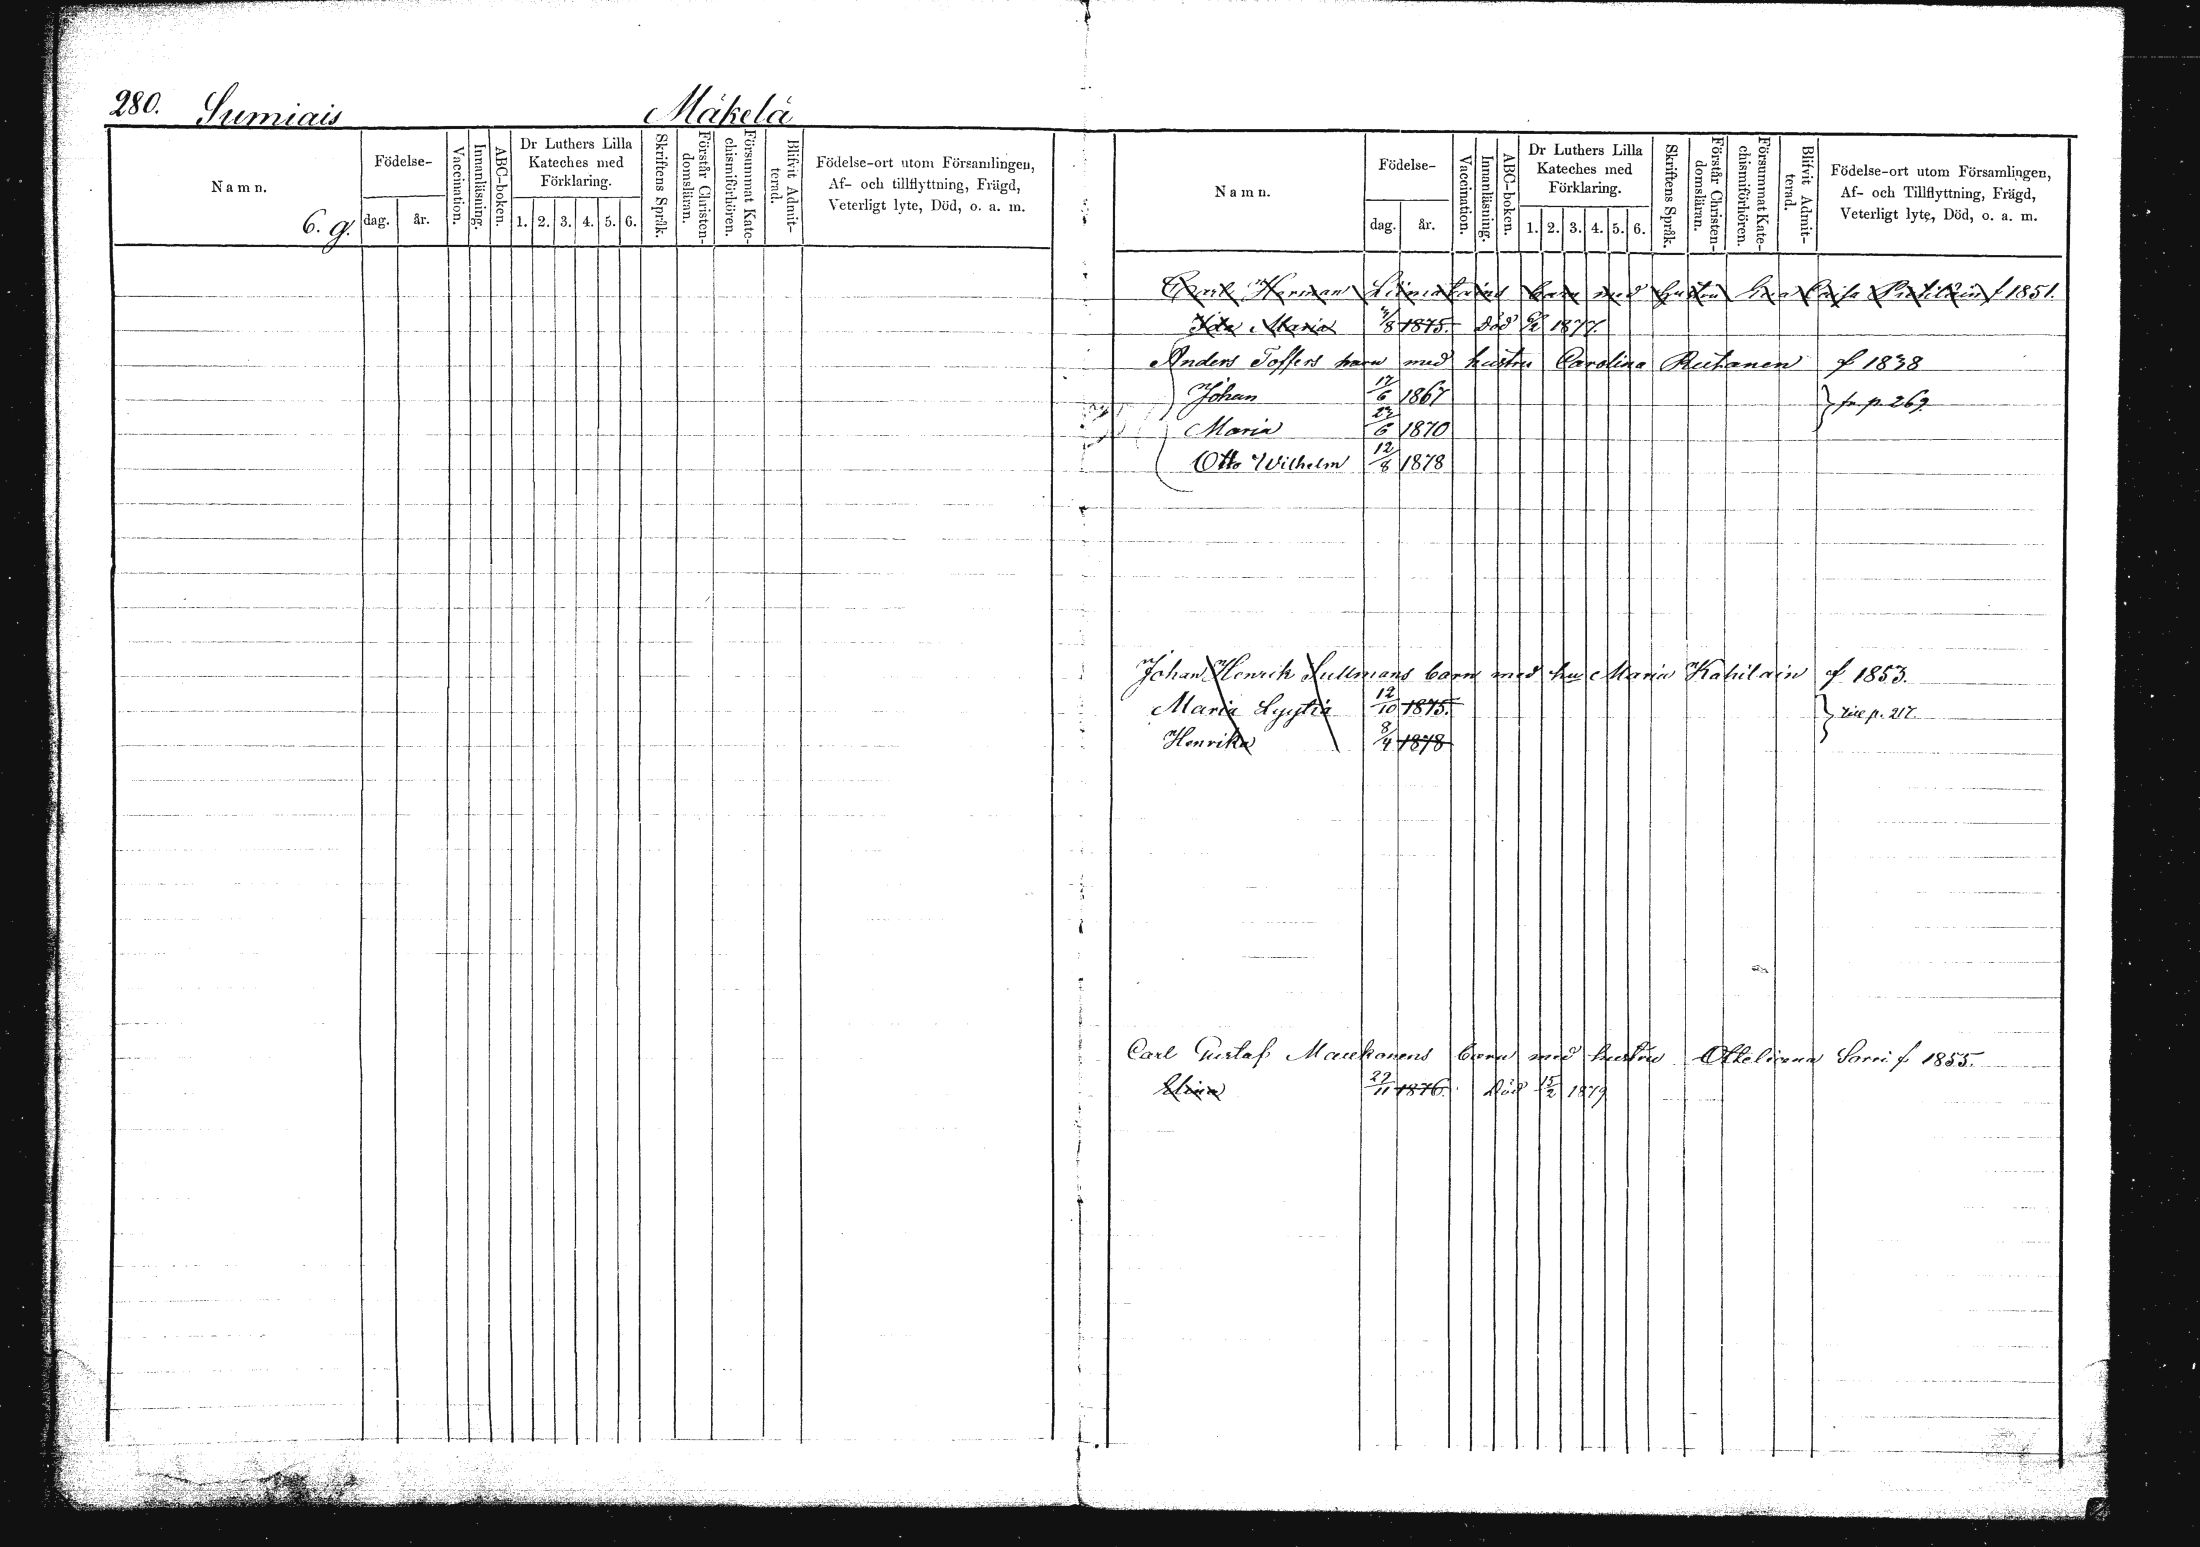 280. Sumiais Mäkelä
Namn.
6. g.
Födelse-
dag. år.
Vaccination.
Innanläsning.
ABC-boken.
Dr Luthers Lilla
Kateches med
Förklaring.
1. 2. 3. 4. 5. 6.
Skriftens Språk.
Förstår Christen-
domsläran.
Försummat Kate-
chismiförhören.
Blifvit Admit-
terad.
Födelse-ort utom Församlingen,
Af- och tillflyttning, Frägd,
Veterligt lyte, Död, o. a. m.
Namn.
Födelse-
dag. år.
Vaccination.
Innanläsning.
ABC-boken.
Dr Luthers Lilla
Kateches med
Förklaring.
1. 2. 3. 4. 5. 6.
Skriftens Språk.
Förstår Christen-
domsläran.
Försummat Kate-
chismiförhören.
Blifvit Admit-
terad.
Födelse-ort utom Församlingen,
Af- och Tillflyttning, Frägd,
Veterligt lyte, Död, o. a. m.
Carl Herman barn med hustru f 1851.
Ida Maria 1875. Död 1877.
Anders Toffers barn med hustru Carolina Ruhanen f 1838
Johan 17/6 1867 fr p. 269
Maria 23/6 1870
Otto Wilhelm 12/8 1878
Johan Henrik Sullmans barn med hu Maria Kahilain f 1853.
Maria Lyytiä 12/10 1875. till p. 217.
Henrika 8/4 1878
Carl Gustaf Maukonens barn med hustru Sorri f 1855.
Elina 22/11 1876. Död 15/2 1879